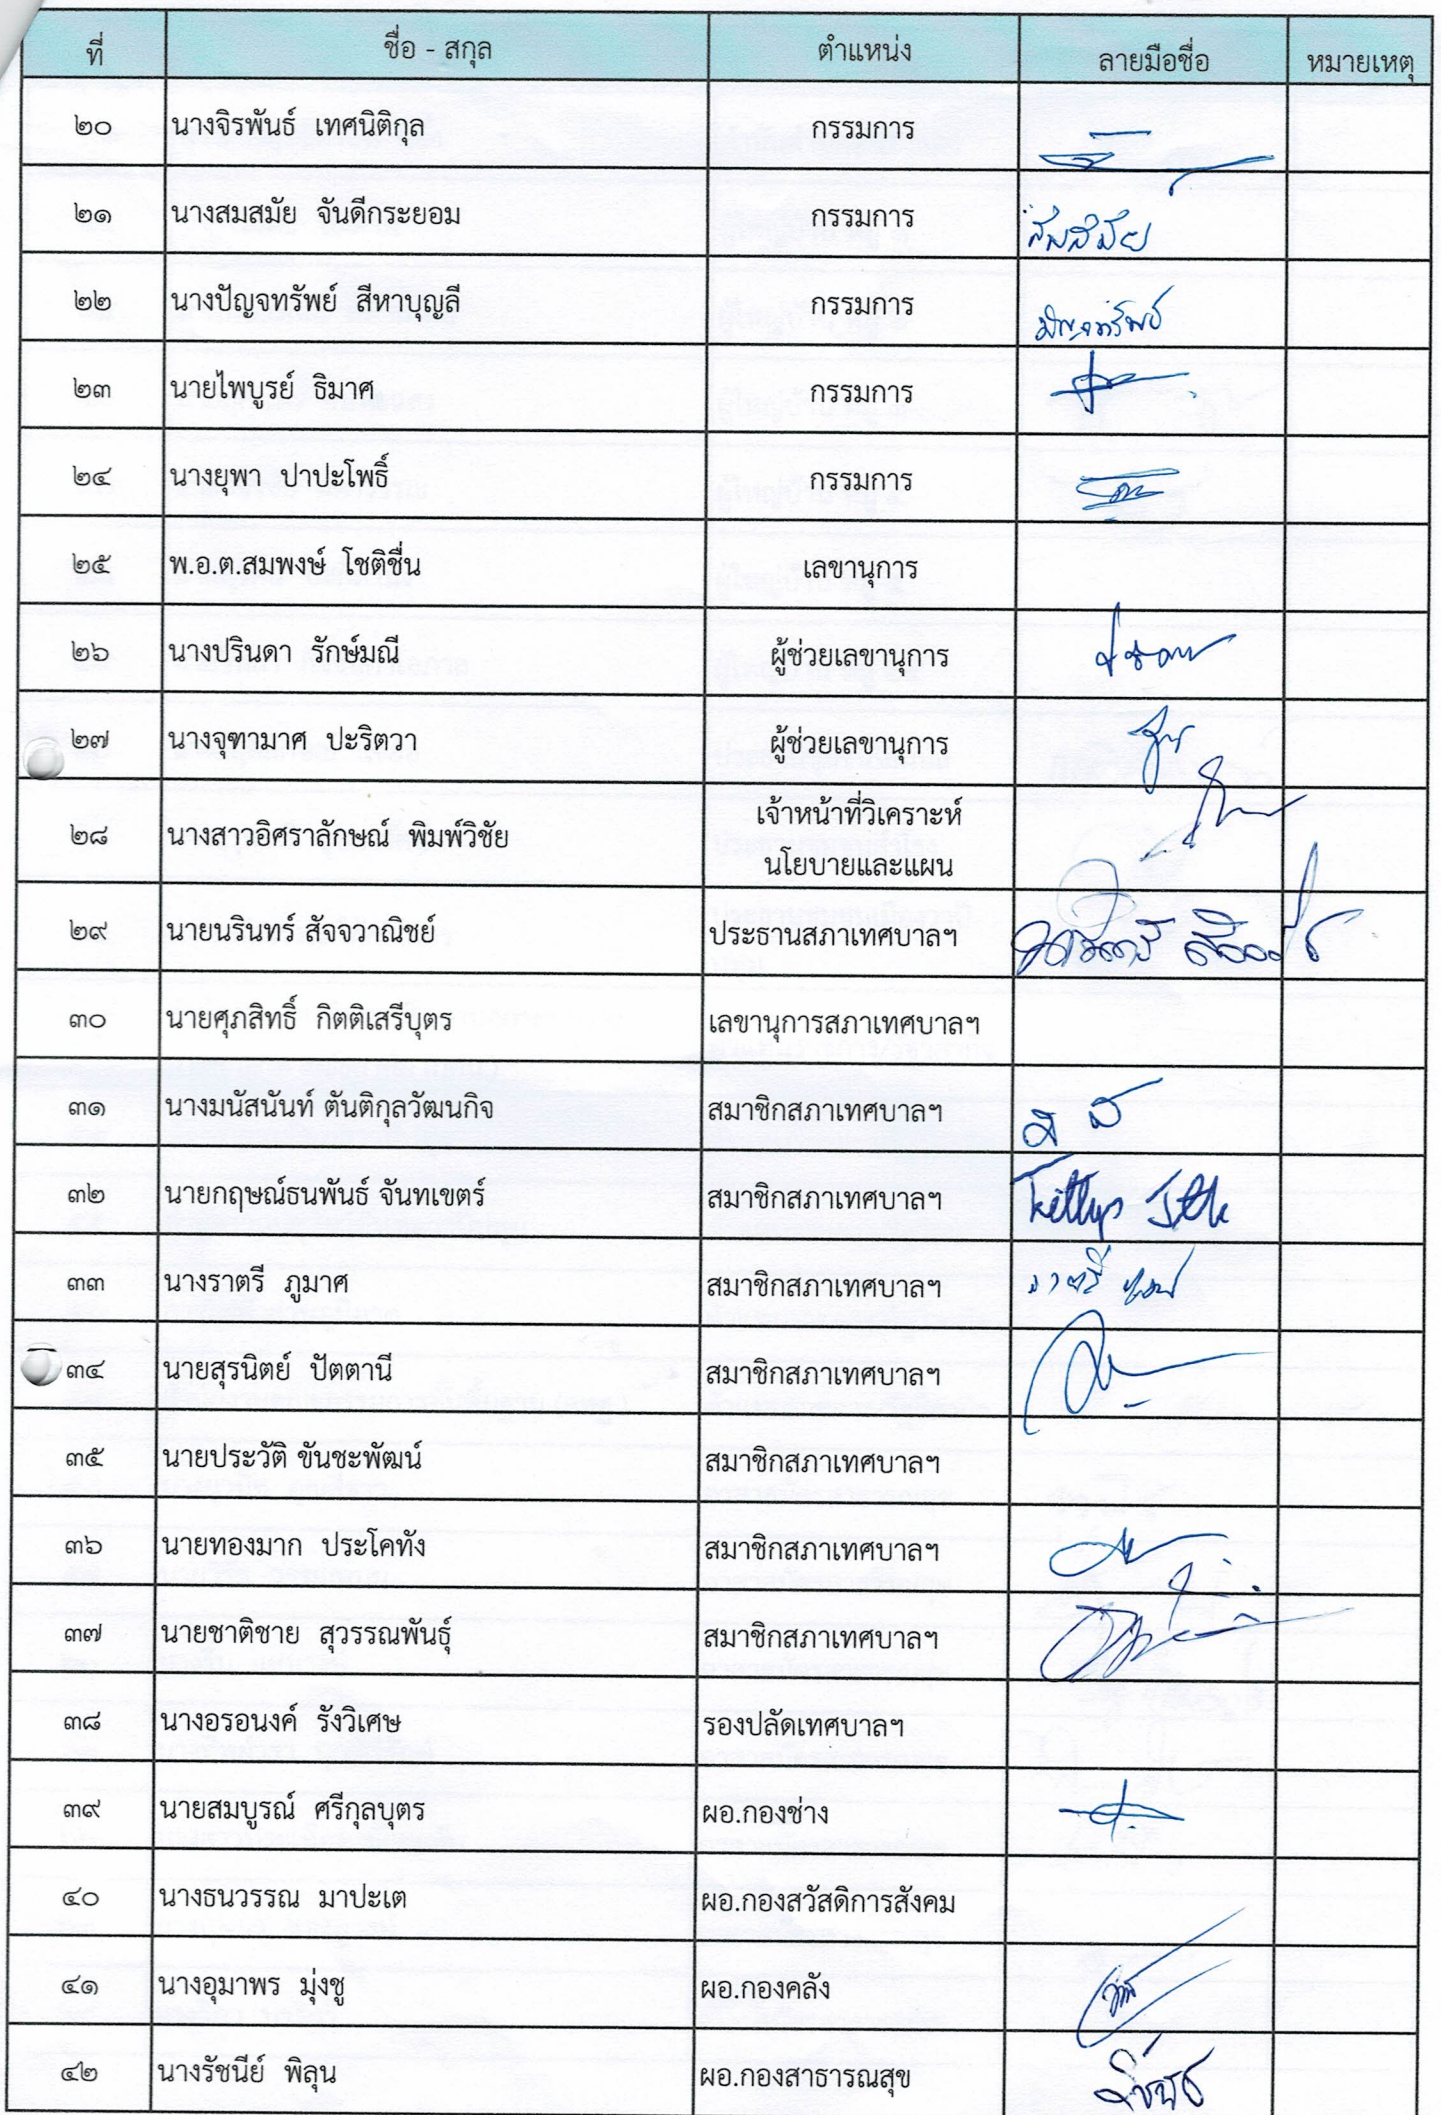 ที่ ชื่อ - สกุล ตำแหน่ง ลายมือชื่อ หมายเหตุ
๒๐ นางจิรพันธ์ เทศนิติกุล กรรมการ
๒๑ นางสมสมัย จันดีกระยอม กรรมการ สมสมัย
๒๒ นางปัญจทรัพย์ สีหาบุญลี กรรมการ ปัญจทรัพย์
๒๓ นายไพบูรย์ ธิมาศ กรรมการ
๒๔ นางยุพา ปาปะโพธิ์ กรรมการ
๒๕ พ.อ.ต.สมพงษ์ โชติชื่น เลขานุการ
๒๖ นางปรินดา รักษ์มณี ผู้ช่วยเลขานุการ
๒๗ นางจุฑามาศ ปะริตวา ผู้ช่วยเลขานุการ
๒๘ นางสาวอิศราลักษณ์ พิมพ์วิชัย เจ้าหน้าที่วิเคราะห์
นโยบายและแผน
๒๙ นายนรินทร์ สัจจวาณิชย์ ประธานสภาเทศบาลฯ
๓๐ นายศุภสิทธิ์ กิตติเสรีบุตร เลขานุการสภาเทศบาลฯ
๓๑ นางมนัสนันท์ ตันติกุลวัฒนกิจ สมาชิกสภาเทศบาลฯ
๓๒ นายกฤษณ์ธนพันธ์ จันทเขตร์ สมาชิกสภาเทศบาลฯ
๓๓ นางราตรี ภูมาศ สมาชิกสภาเทศบาลฯ ราตรี
๓๔ นายสุรนิตย์ ปัตตานี สมาชิกสภาเทศบาลฯ
๓๕ นายประวัติ ขันชะพัฒน์ สมาชิกสภาเทศบาลฯ
๓๖ นายทองมาก ประโคทัง สมาชิกสภาเทศบาลฯ
๓๗ นายชาติชาย สุวรรณพันธุ์ สมาชิกสภาเทศบาลฯ
๓๘ นางอรอนงค์ รังวิเศษ รองปลัดเทศบาลฯ
๓๙ นายสมบูรณ์ ศรีกุลบุตร ผอ.กองช่าง
๔๐ นางธนวรรณ มาปะเต ผอ.กองสวัสดิการสังคม
๔๑ นางอุมาพร มุ่งชู ผอ.กองคลัง
๔๒ นางรัชนีย์ พิลุน ผอ.กองสาธารณสุข